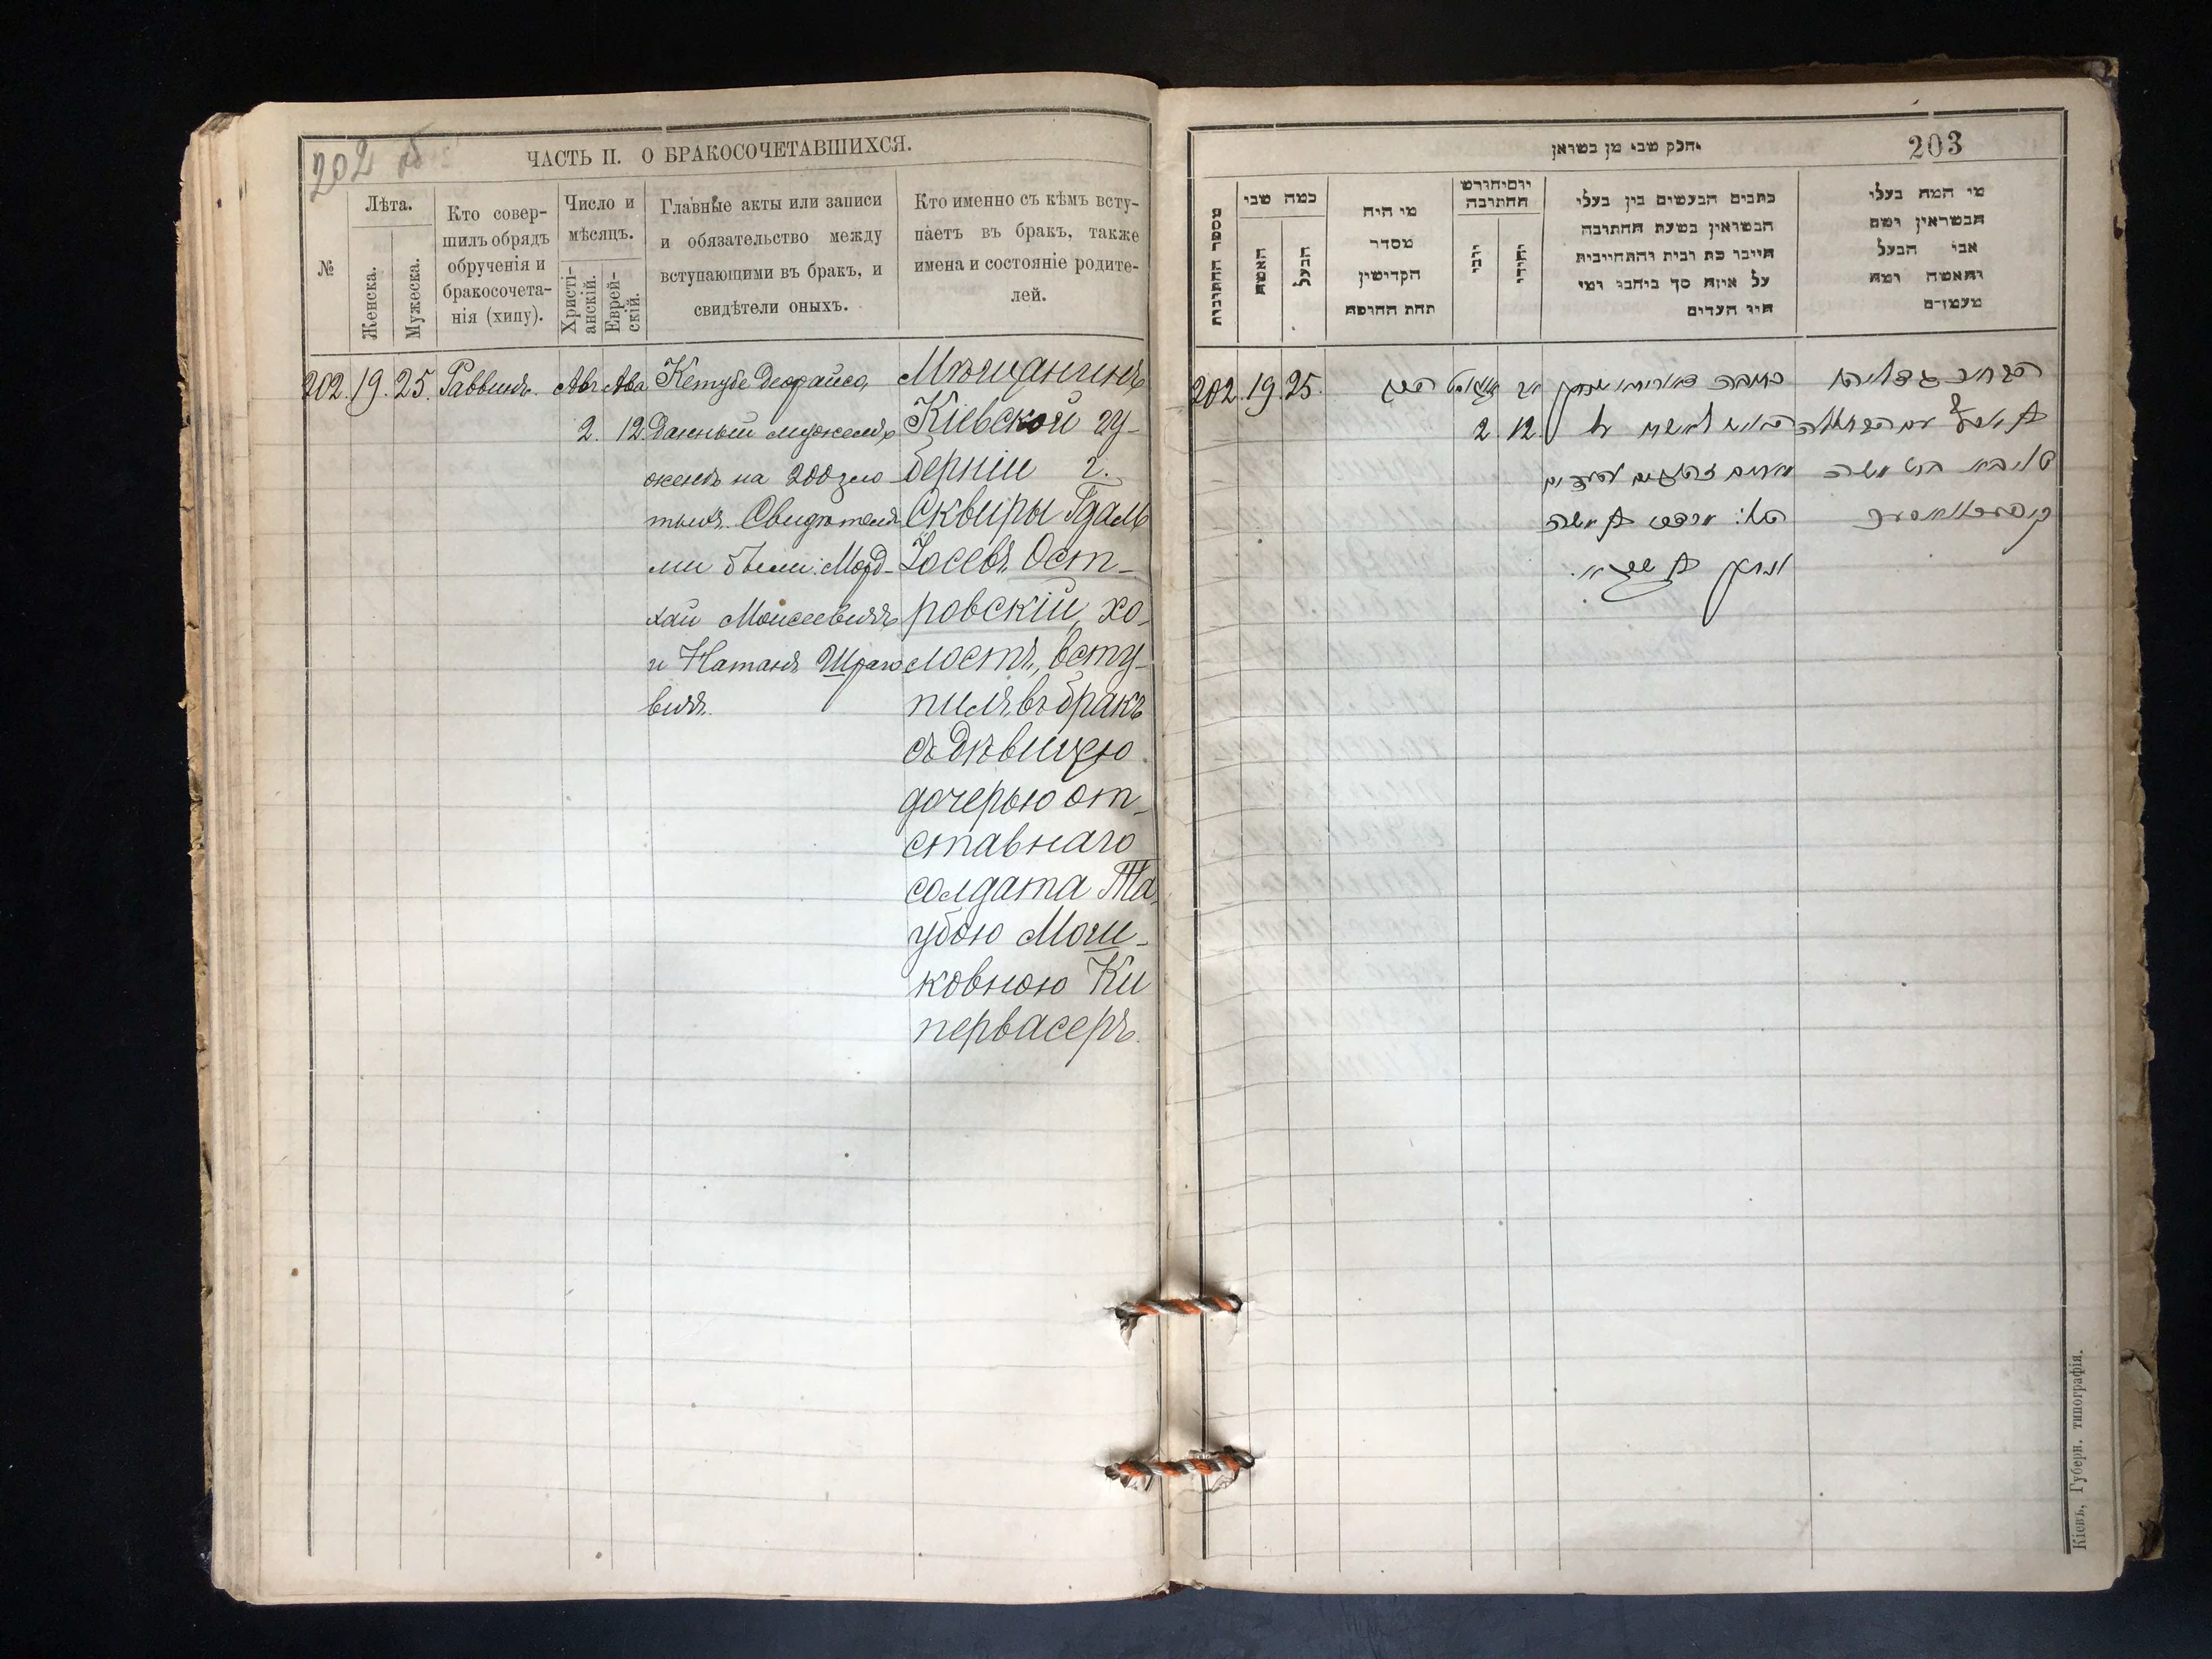 202 об
ЧАСТЬ II. О БРАКОСОЧЕТАВШИХСЯ.
№
Лѣта.
Женска.
Мужеска.
Кто совер-
шилъ обрядъ
обрученія и
бракосочета-
нія (хипу).
Число и
мѣсяцъ.
Христі-
анскій.
Еврей-
скій.
Главные акты или записи
и обязательство между
вступающими въ бракъ, и
свидѣтели оныхъ.
Кто именно съ кѣмъ всту-
паетъ въ бракъ, также
имена и состояніе родите-
лей.
202. 19. 25. Раввинъ. Авг Ава
2. 12.
Кетубе Деорайсо,
данный мужемъ
женѣ на 200 зло
тыхъ. Свидѣтеля
ми были: Морд-
хай Моисеевичъ
и Натанъ Шраго
вичъ.
Мѣщанинъ
Кіевской гу-
берніи г.
Сквиры Гдаль
Іосевъ Ост-
ровскій, хо-
лостъ, всту-
пилъ въ бракъ
съ дѣвицею
дочерью от-
ставнаго
солдата Та-
убою Мош-
ковною Ки
первасеръ.
חלק שני מן בשואין
203
מספר החתונות
כמה שני
האשה
הבעל
מי היה
מסדר
הקדושין
תחת החופה
יום וחודש
החתונה
יוני
יהודי
כתבים הנעשים בין בעלי
הנשואין בשעת החתונה
היינו כת ובית והתחייבות
על איזה סך ביחבו ומי
היו העדים
מי המה בעלי
הנשואין ושם
אבי הבעל
והאשה ומה
מעמדם
202. 19. 25. הרב
2 12
כתובה דאורייתא
מרדכי ב משה
ונתן ב שרגא.
Кіевъ, Губерн. типографія.